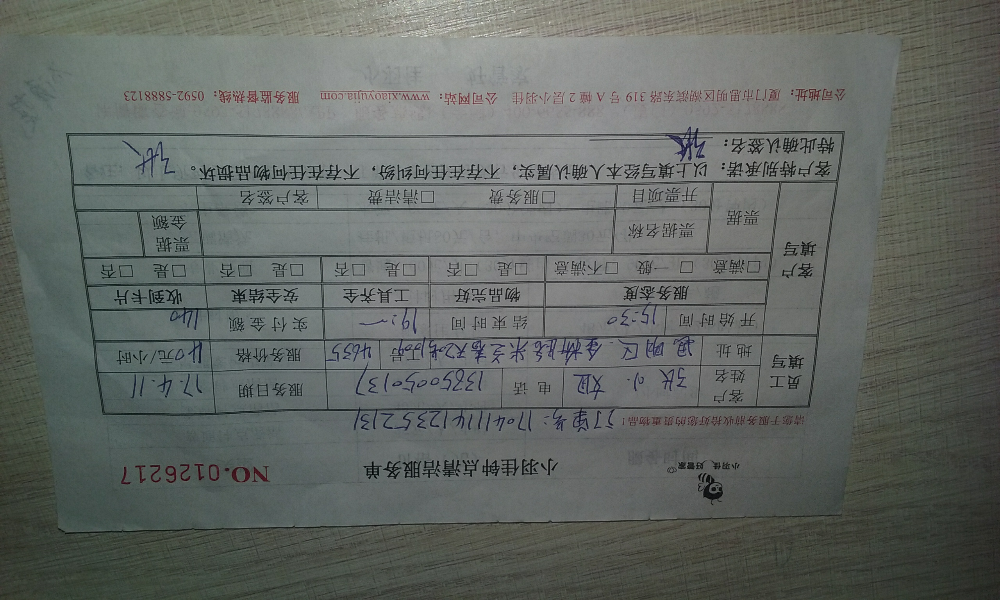 小羽佳 好管家
小羽佳钟点清洁服务单
NO.0126217
请您于服务前收拾好您的贵重物品!
订单号:17041114123552131
员工填写
客户姓名 张小姐 电话 13850050137 服务日期 17.4.11
地址 思明区 服务价格 40元/小时
开始时间 15:30 结束时间 19:一 实付金额 140
客户填写
服务态度 物品完好 工具齐全 安全结束 收到卡片
□满意 □一般 □不满意 □是 □否 □是 □否 □是 □否 □是 □否
票据 票据名称 票据金额
开票项目 □服务费 □清洁费 客户签名
客户特别承诺:以上填写经本人确认属实,不存在任何纠纷,不存在任何物品损坏。
特此确认签名: 张
公司地址:厦门市思明区湖滨东路 319 号 A 幢 2 层小羽佳 公司网站:www.xiaoyujia.com 服务监督热线:0592-5888123